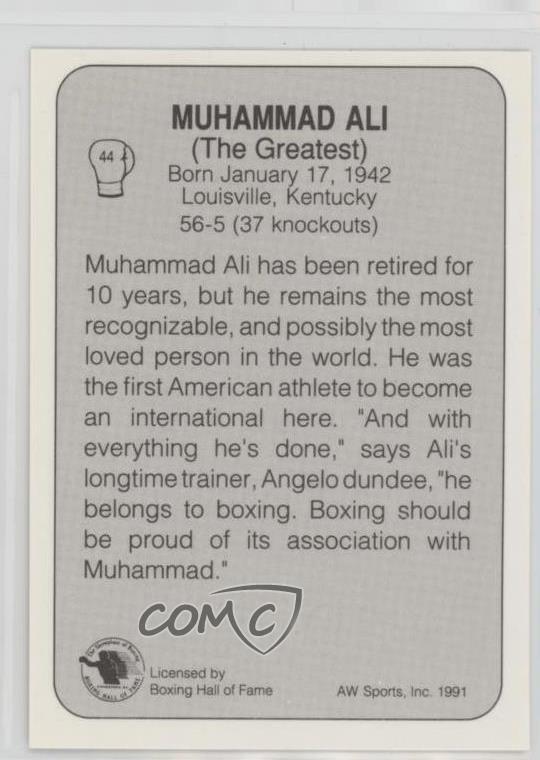 44
MUHAMMAD ALI
(The Greatest)
Born January 17, 1942
Louisville, Kentucky
56-5 (37 knockouts)
Muhammad Ali has been retired for
10 years, but he remains the most
recognizable, and possibly the most
loved person in the world. He was
the first American athlete to become
an international here. "And with
everything he's done," says Ali's
longtime trainer, Angelo dundee, "he
belongs to boxing. Boxing should
be proud of its association with
Muhammad."
COMC
BOXING HALL OF FAME
Licensed by
Boxing Hall of Fame
AW Sports, Inc. 1991